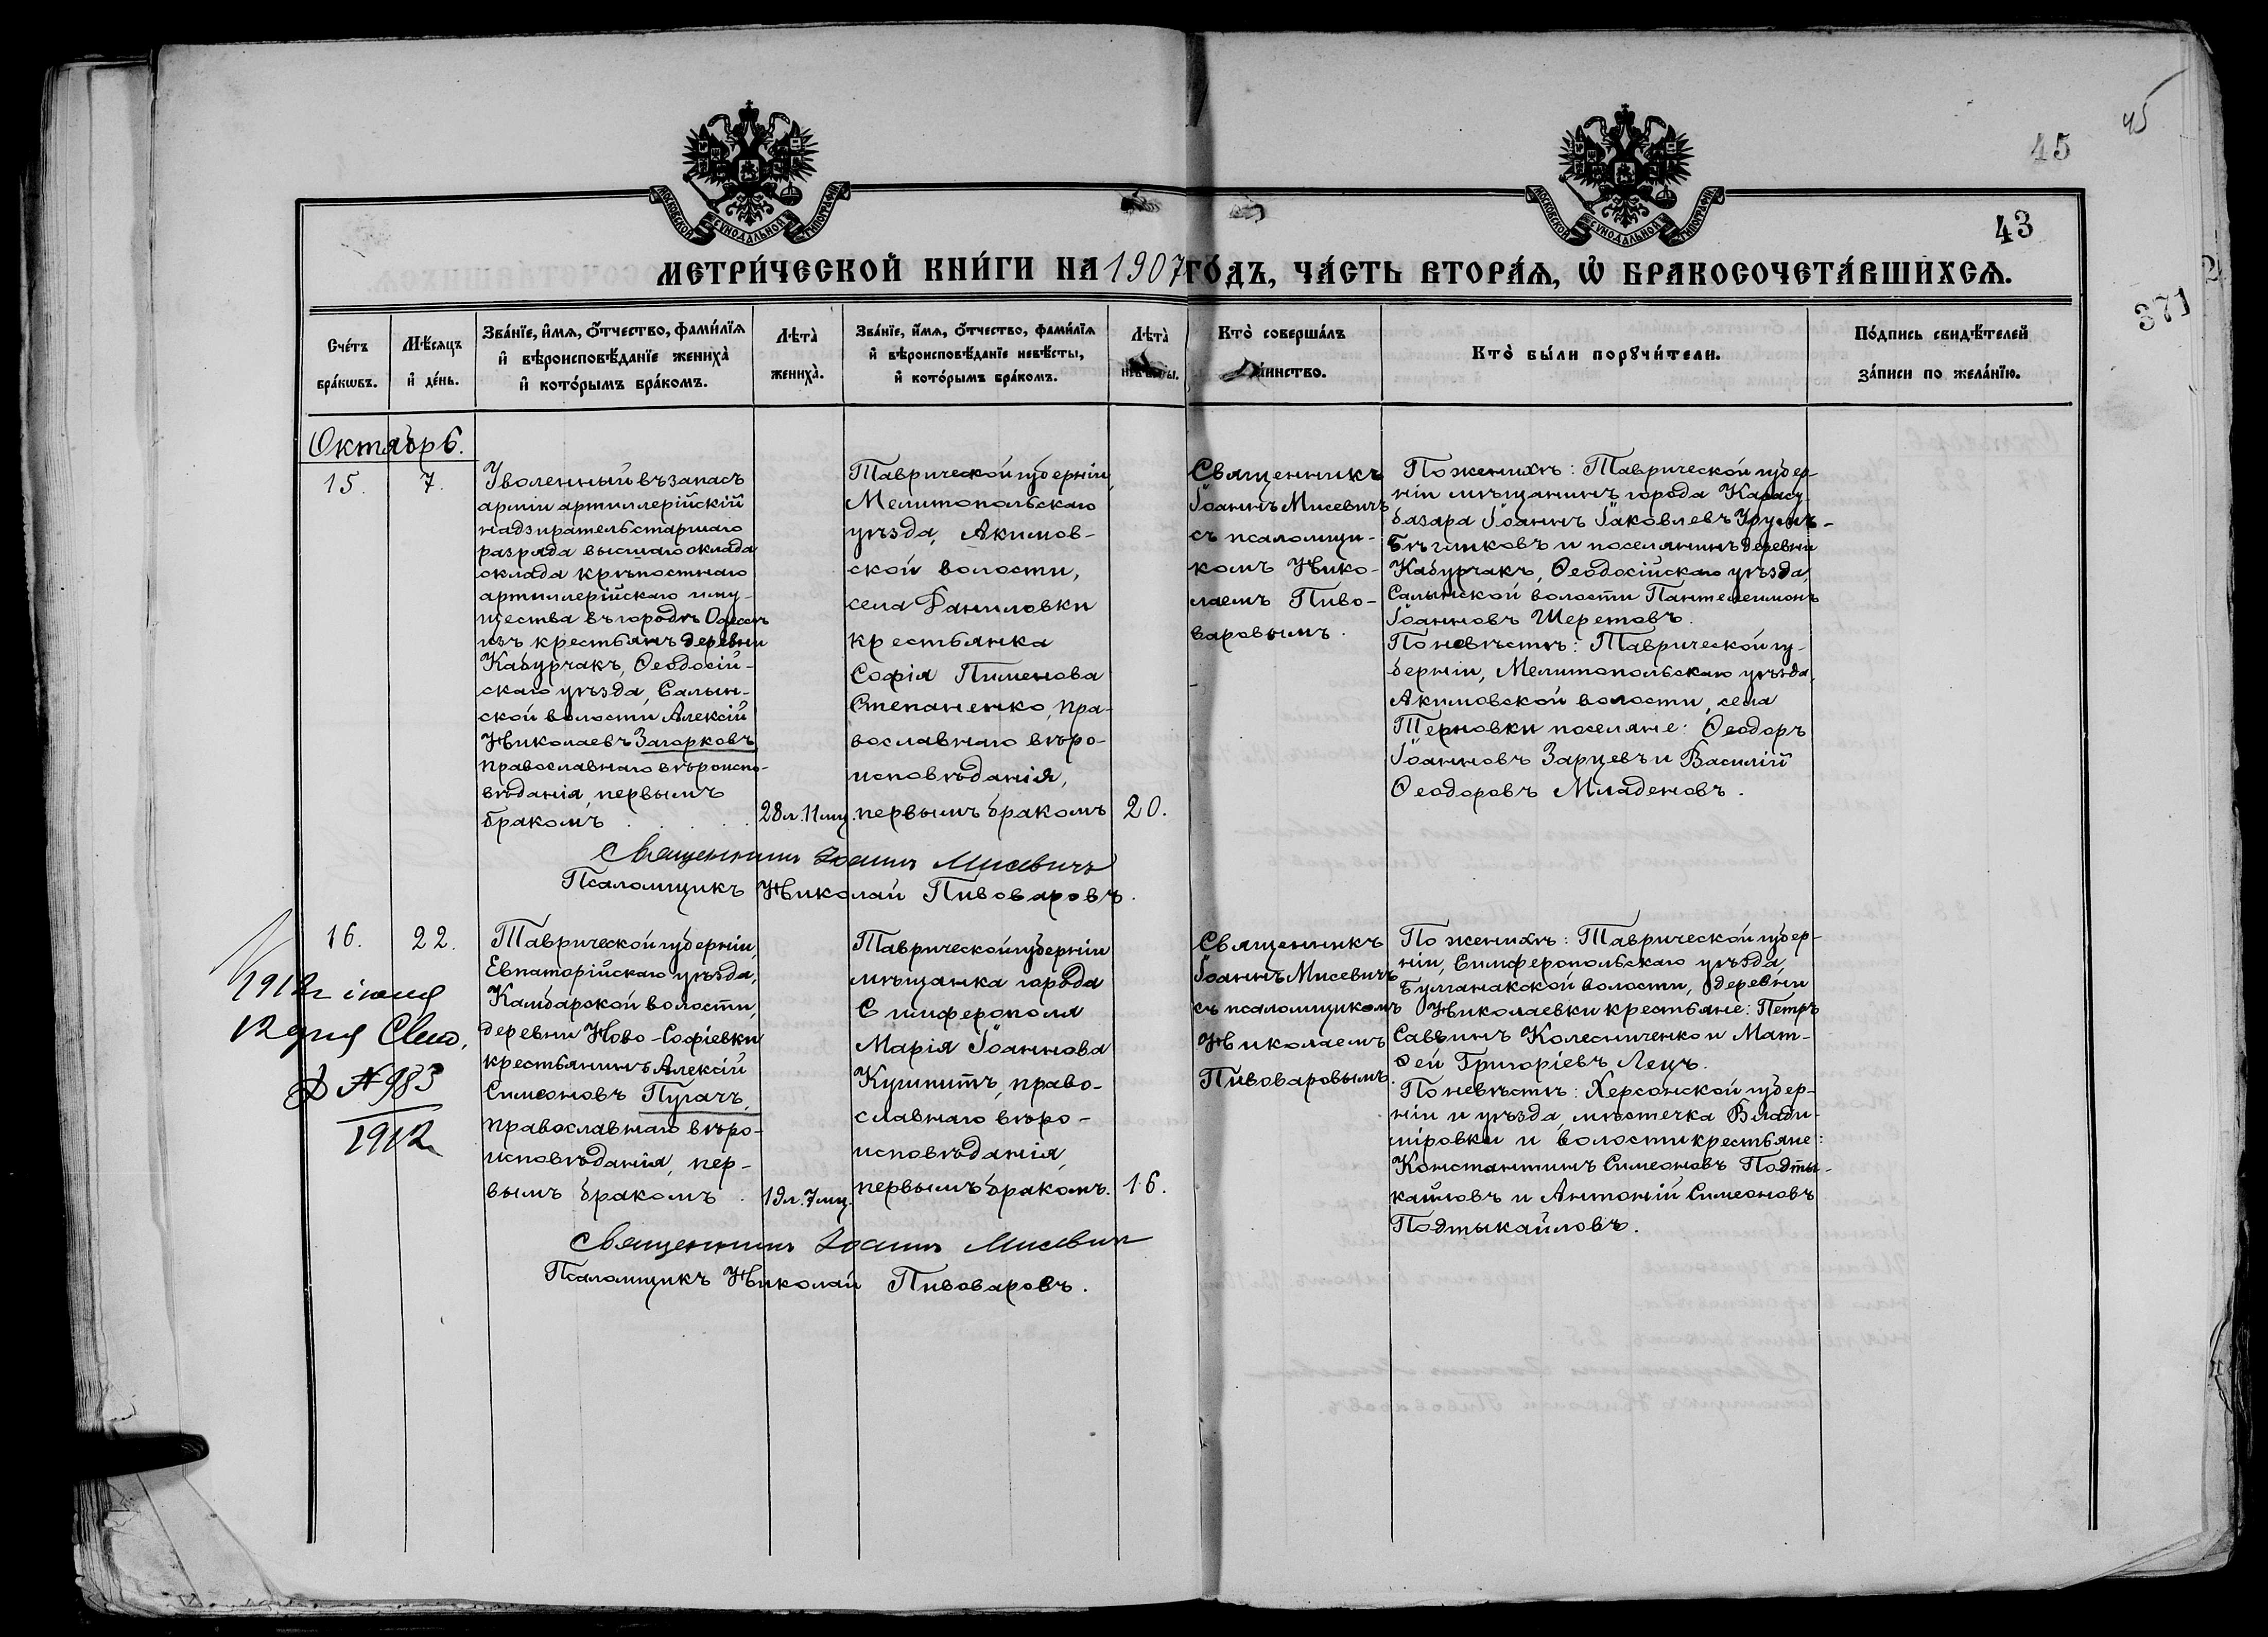 45
45
43
371
МОСКОВСКОЙ СѴНОДАЛЬНОЙ ТИПОГРАФІИ
МОСКОВСКОЙ СѴНОДАЛЬНОЙ ТИПОГРАФІИ
МЕТРИ́ЧЕСКОЙ КНИ́ГИ НА 1907 ГО́ДЪ, ЧА́СТЬ ВТОРА́Я, Ѡ БРАКОСОЧЕТА́ВШИХСЯ.
Сче́тъ
бра́кѡвъ.
Мѣ́сяцъ
и҆ де́нь.
Зва́нїе, и҆́мя, о҆́тчество, фами́лїя
и҆ вѣроисповѣ́данїе жениха̀
и҆ кото́рымъ бра́комъ.
Лѣта̀
жениха̀.
Зва́нїе, и҆́мя, о҆́тчество, фами́лїя
и҆ вѣроисповѣ́данїе невѣ́сты,
и҆ кото́рымъ бра́комъ.
Лѣта̀
Кто̀ соверша́лъ
та́инство.
Кто̀ бы́ли порꙋчи́тели.
По́дпись свидѣ́телей
за́писи по жела́нїю.
Октябрь.
15.
7.
Уволенный въ запасъ
арміи артиллерійскій
надзиратель старшаго
разряда высшаго оклада
оклада крѣпостнаго
артиллерійскаго иму-
щества въ городѣ Одессѣ
изъ крестьянъ деревни
Кабурчакъ, Ѳеодосій-
скаго уѣзда, Салын-
ской волости Алексій
Николаевъ Загорковъ
православнаго вѣроиспо-
вѣданія, первымъ
бракомъ
28 л. 11 мц.
Таврической губерніи,
Мелитопольскаго
уѣзда, Акимов-
ской волости,
села Даниловки
крестьянка
Софія Пименова
Степаненко, пра-
вославнаго вѣро-
исповѣданія,
первымъ бракомъ
20.
Священникъ
Іоаннъ Мисевичъ
съ псаломщи-
комъ Нико-
лаемъ Пиво-
варовымъ.
По женихѣ: Таврической губер-
ніи мѣщанинъ города Карасу-
базара Іоаннъ Іаковлевъ Урумъ-
Бѣгликовъ и поселянинъ деревни
Кабурчакъ, Ѳеодосійскаго уѣзда,
Салынской волости Пантелеимонъ
Іоанновъ Шеретовъ.
По невѣстѣ: Таврической гу-
берніи, Мелитопольскаго уѣзда,
Акимовской волости, села
Терновки поселяне: Ѳеодоръ
Іоанновъ Зарцевъ и Василій
Ѳеодоровъ Младеновъ.
Священникъ Іоаннъ Мисевичъ
Псаломщикъ Николай Пивоваровъ.
16.
22.
1912 г іюня
12 дня
№ 983
1912
Таврической губерніи,
Евпаторійскаго уѣзда,
Камбарской волости,
деревни Ново-Софіевки
крестьянинъ Алексій
Симеоновъ Пугачъ,
православнаго вѣро-
исповѣданія, пер-
вымъ бракомъ.
19 л. 7 мц.
Таврической губерніи
мѣщанка города
Симферополя
Марія Іоаннова
Кушнитъ, право-
славнаго вѣро-
исповѣданія,
первымъ бракомъ.
16.
Священникъ
Іоаннъ Мисевичъ
съ псаломщикомъ
Николаемъ
Пивоваровымъ.
По женихѣ: Таврической губер-
ніи, Симферопольскаго уѣзда,
Булганакской волости, деревни
Николаевки крестьяне: Петръ
Саввинъ Колесниченко и Мат-
ѳей Григоріевъ Лецъ.
По невѣстѣ: Херсонской губер-
ніи и уѣзда, мѣстечка Влади-
міровки и волости крестьяне:
Константинъ Симеоновъ Подты-
кайловъ и Антоній Симеоновъ
Подтыкайловъ.
Священникъ Іоаннъ Мисевич
Псаломщикъ Николай Пивоваровъ.